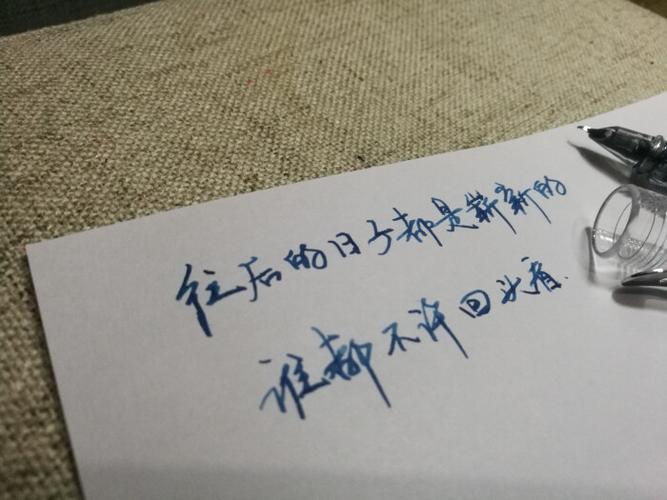 往后的日子都是崭新的
谁都不许回头看.